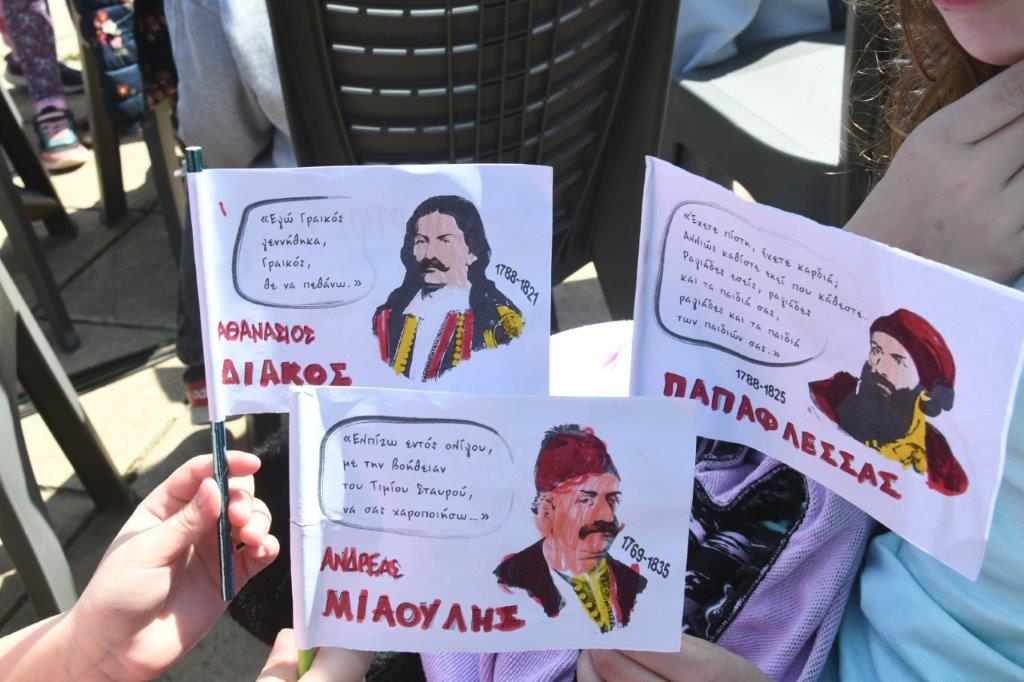 «Εγώ Γραικός
γεννήθηκα,
Γραικός,
θε να πεθάνω.»
1788-1821
ΑΘΑΝΑΣΙΟΣ
ΔΙΑΚΟΣ
«Έχετε πίστη, έχετε καρδιά;
Αλλιώς καθίστε εκεί που κάθεστε.
Ραγιάδες εσείς, ραγιάδες
και τα παιδιά σας,
ραγιάδες και τα παιδιά
των παιδιών σας.»
1788-1825
ΠΑΠΑΦΛΕΣΣΑΣ
«Ελπίζω εντός ολίγου,
με την βοήθειαν
του Τιμίου Σταυρού,
να σας χαροποιήσω...»
1769-1835
ΑΝΔΡΕΑΣ
ΜΙΑΟΥΛΗΣ